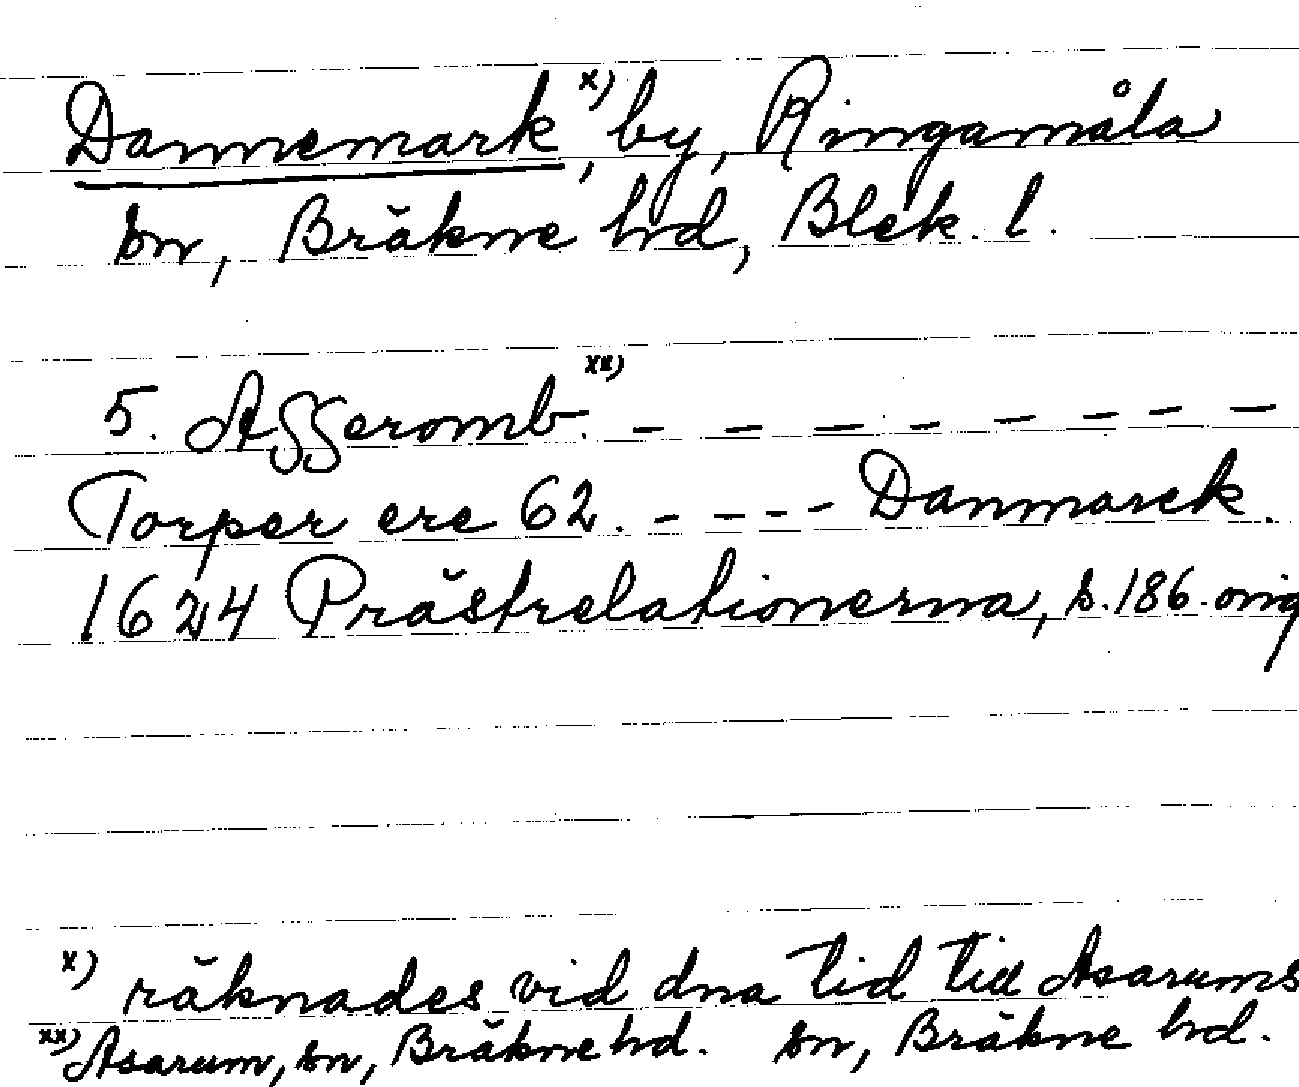 Dannemark x), by, Ringamåla
sn, Bräkne hd, Blek. l.
5. Asseromb. xx) - - - - - - - -
Torper ere 62. - - - - Danmarck.
1624 Prästrelationerna, s. 186. orig
x) räknades vid dna tid till Asarums
xx) Asarum, sn, Bräkne hd. sn, Bräkne hd.